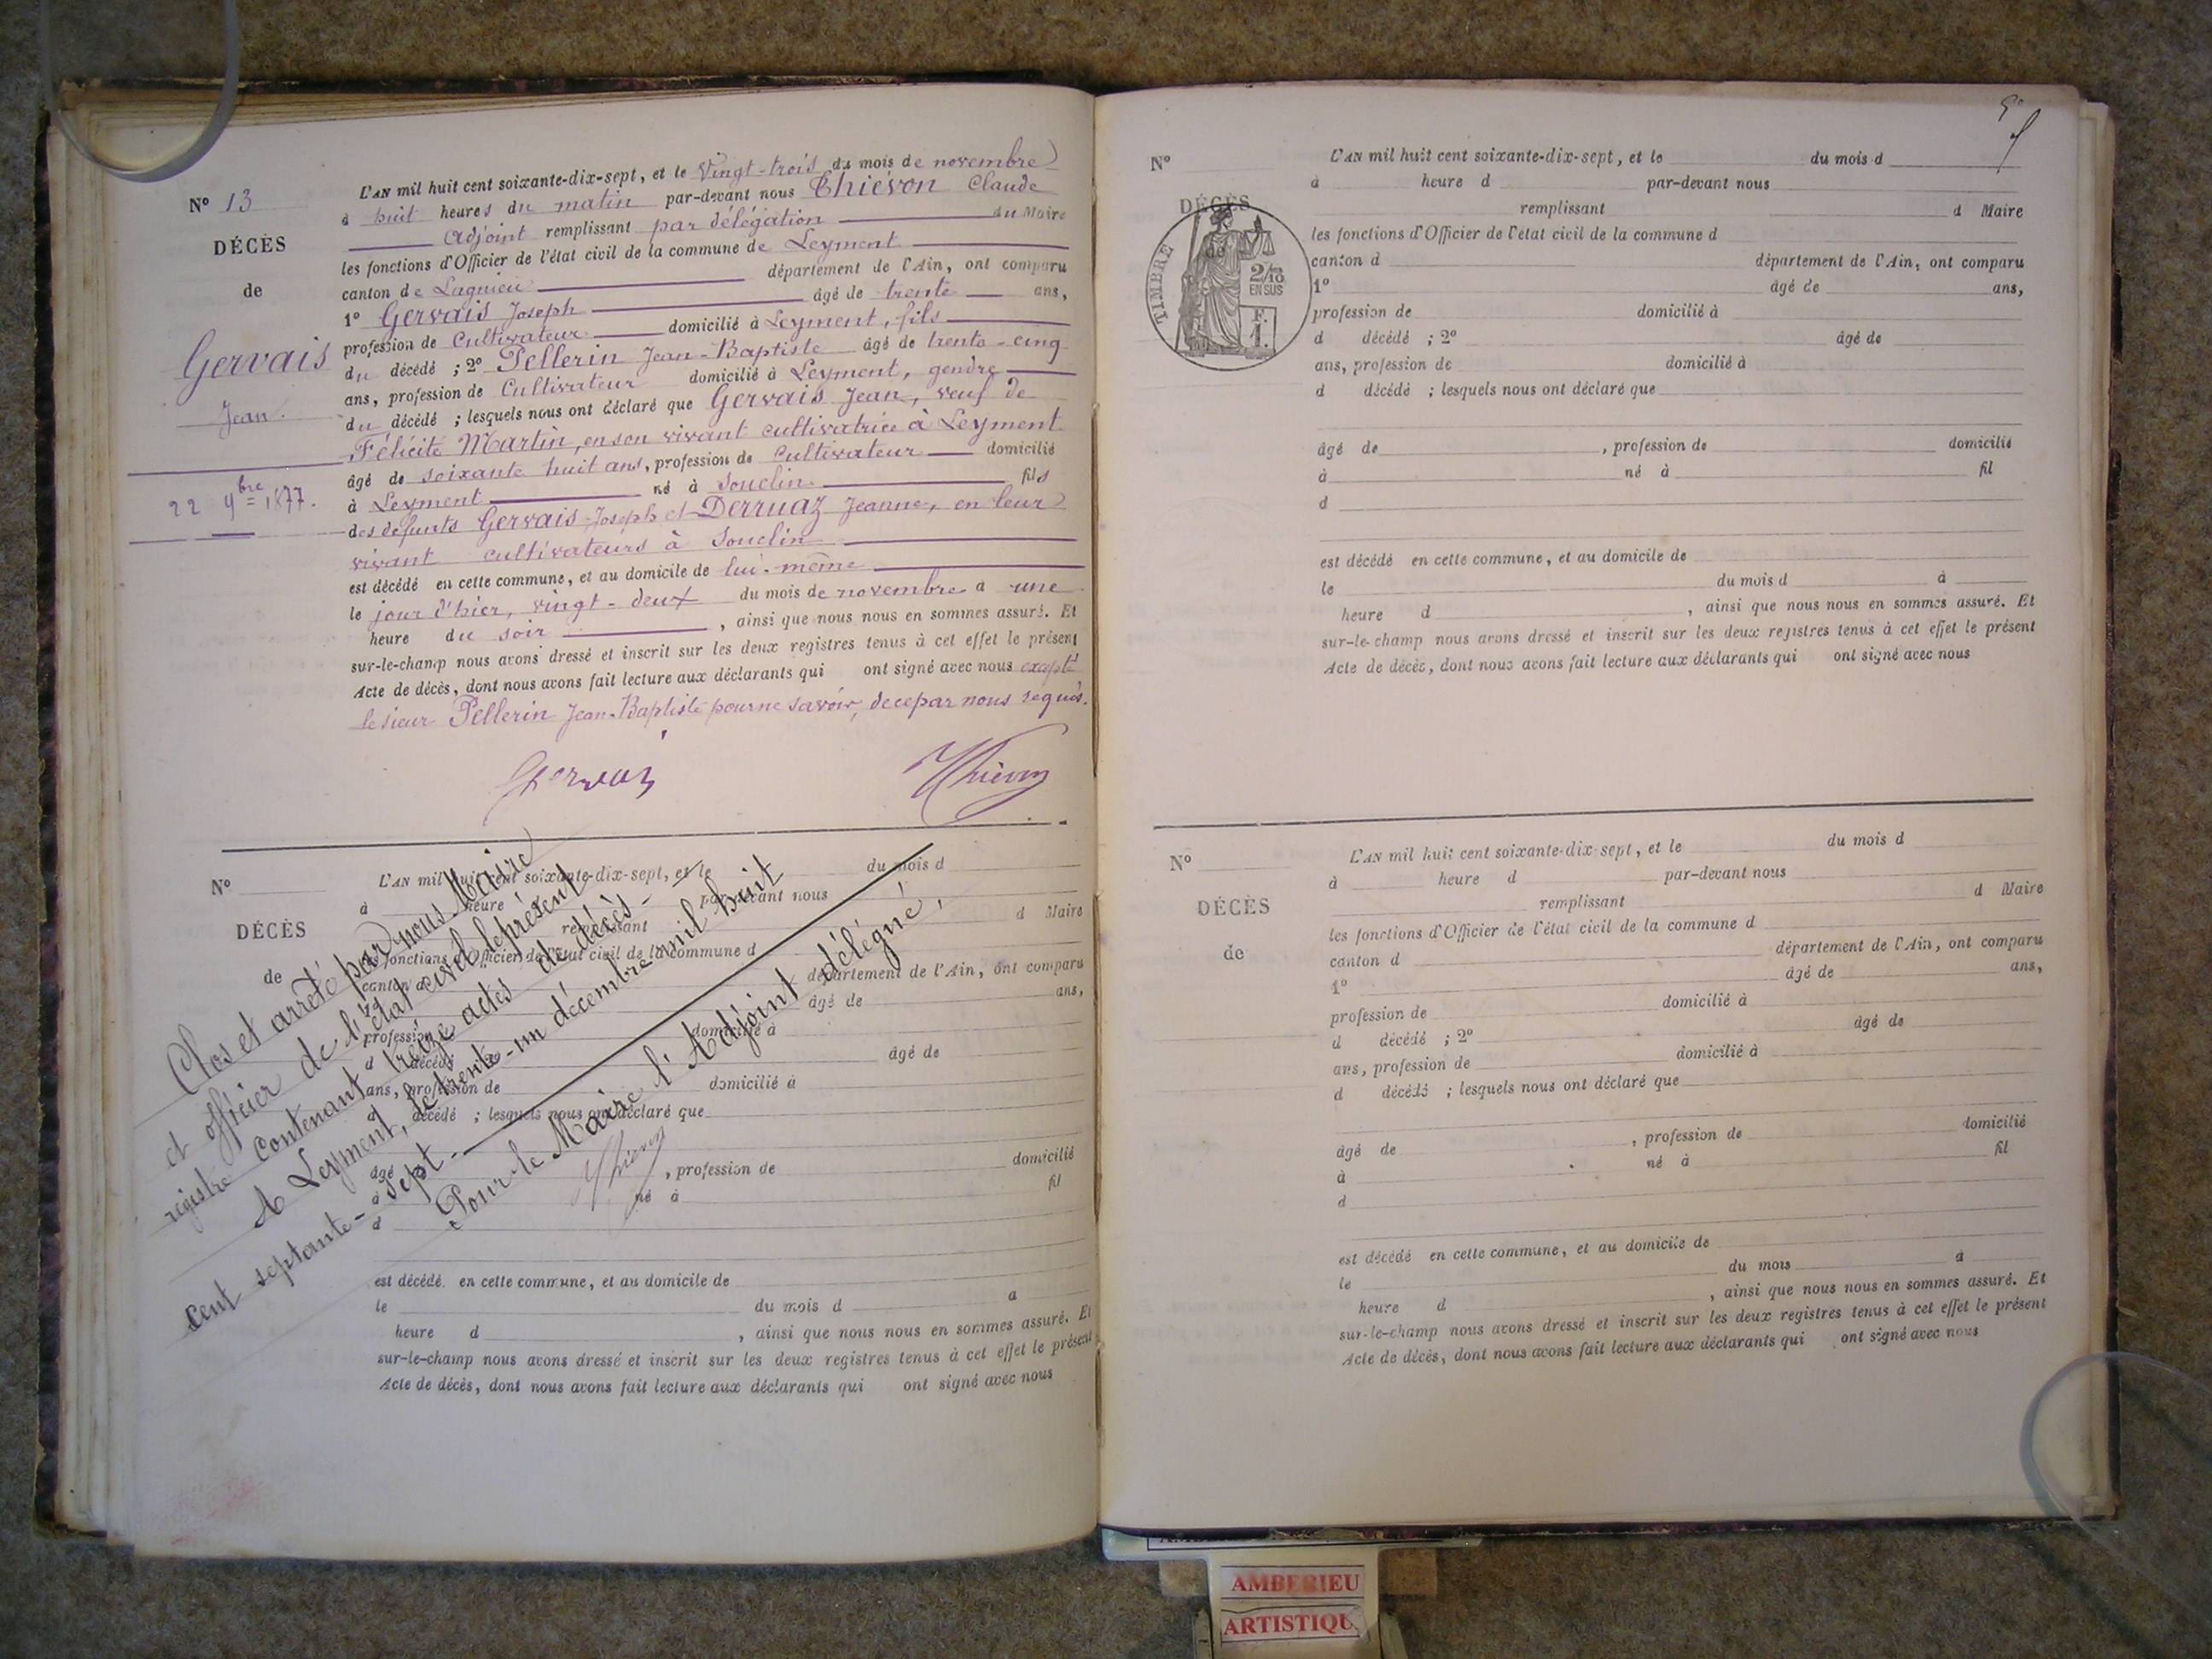 N° 13
DÉCÈS
de
Gervais
Jean.
22 9bre 1877.
L'AN mil huit cent soixante-dix-sept, et le vingt-trois du mois de novembre
à huit heures du matin par-devant nous Thiévon Claude
Adjoint remplissant par délégation du Maire
les fonctions d'Officier de l'état civil de la commune de Leyment
canton de Lagnieu département de l'Ain, ont comparu
1° Gervais Joseph âgé de trente ans,
profession de Cultivateur domicilié à Leyment, fils
du décédé ; 2° Pellerin Jean-Baptiste âgé de trente-cinq
ans, profession de Cultivateur domicilié à Leyment, gendre
du décédé ; lesquels nous ont déclaré que Gervais Jean, veuf de
Félicité Martin, en son vivant cultivatrice à Leyment
âgé de soixante huit ans, profession de Cultivateur domicilié
à Leyment né à Souclin fils
des défunts Gervais Joseph et Derruaz Jeanne, en leur
vivant cultivateurs à Souclin
est décédé en cette commune, et au domicile de lui-même
le jour d'hier, vingt-deux du mois de novembre à une
heure du soir , ainsi que nous nous en sommes assuré. Et
sur-le-champ nous avons dressé et inscrit sur les deux registres tenus à cet effet le présent
Acte de décès, dont nous avons fait lecture aux déclarants qui ont signé avec nous excepté
le sieur Pellerin Jean-Baptiste pour ne savoir, de ce par nous requis.
Gervais
Thiévon
N°
DÉCÈS
de
L'AN mil huit cent soixante-dix-sept, et le du mois d
à heure par-devant nous
remplissant d Maire
les fonctions d'Officier de l'état civil de la commune d
canton d département de l'Ain, ont comparu
1° âgé de ans,
profession domicilié à
d décédé âgé de
ans, profession de domicilié à
d décédé ; lesquels nous ont déclaré que
âgé , profession de domicilié
à né à fil
d
est décédé en cette commune, et au domicile de
le du mois d à
heure d , ainsi que nous nous en sommes assuré. Et
sur-le-champ nous avons dressé et inscrit sur les deux registres tenus à cet effet le présent
Acte de décès, dont nous avons fait lecture aux déclarants qui ont signé avec nous
Clos et arrêté par nous Maire
et officier de l'état civil le présent
registre contenant treize actes de décès
A Leyment, le trente-un décembre mil huit
cent septante-sept.
Pour le Maire l'Adjoint délégué,
Thiévon
N°
DÉCÈS
de
TIMBRE
2/10
EN SUS
F.
1.
L'AN mil huit cent soixante-dix-sept, et le du mois d
à heure d par-devant nous
remplissant d Maire
les fonctions d'Officier de l'état civil de la commune d
canton d département de l'Ain, ont comparu
1° âgé de ans,
profession de domicilié à
d décédé ; 2° âgé de
ans, profession de domicilié à
d décédé ; lesquels nous ont déclaré que
âgé de , profession de domicilié
à né à fil
d
est décédé en cette commune, et au domicile de
le du mois d à
heure d , ainsi que nous nous en sommes assuré. Et
sur-le-champ nous avons dressé et inscrit sur les deux registres tenus à cet effet le présent
Acte de décès, dont nous avons fait lecture aux déclarants qui ont signé avec nous
N°
DÉCÈS
de
L'AN mil huit cent soixante-dix-sept, et le du mois d
à heure d par-devant nous
remplissant d Maire
les fonctions d'Officier de l'état civil de la commune d
canton d département de l'Ain, ont comparu
1° âgé de ans,
profession de domicilié à
d décédé ; 2° âgé de
ans, profession de domicilié à
d décédé ; lesquels nous ont déclaré que
âgé de , profession de domicilié
à né à fil
d
est décédé en cette commune, et au domicile de
le du mois à
heure d , ainsi que nous nous en sommes assuré. Et
sur-le-champ nous avons dressé et inscrit sur les deux registres tenus à cet effet le présent
Acte de décès, dont nous avons fait lecture aux déclarants qui ont signé avec nous
AMBERIEU
ARTISTIQU